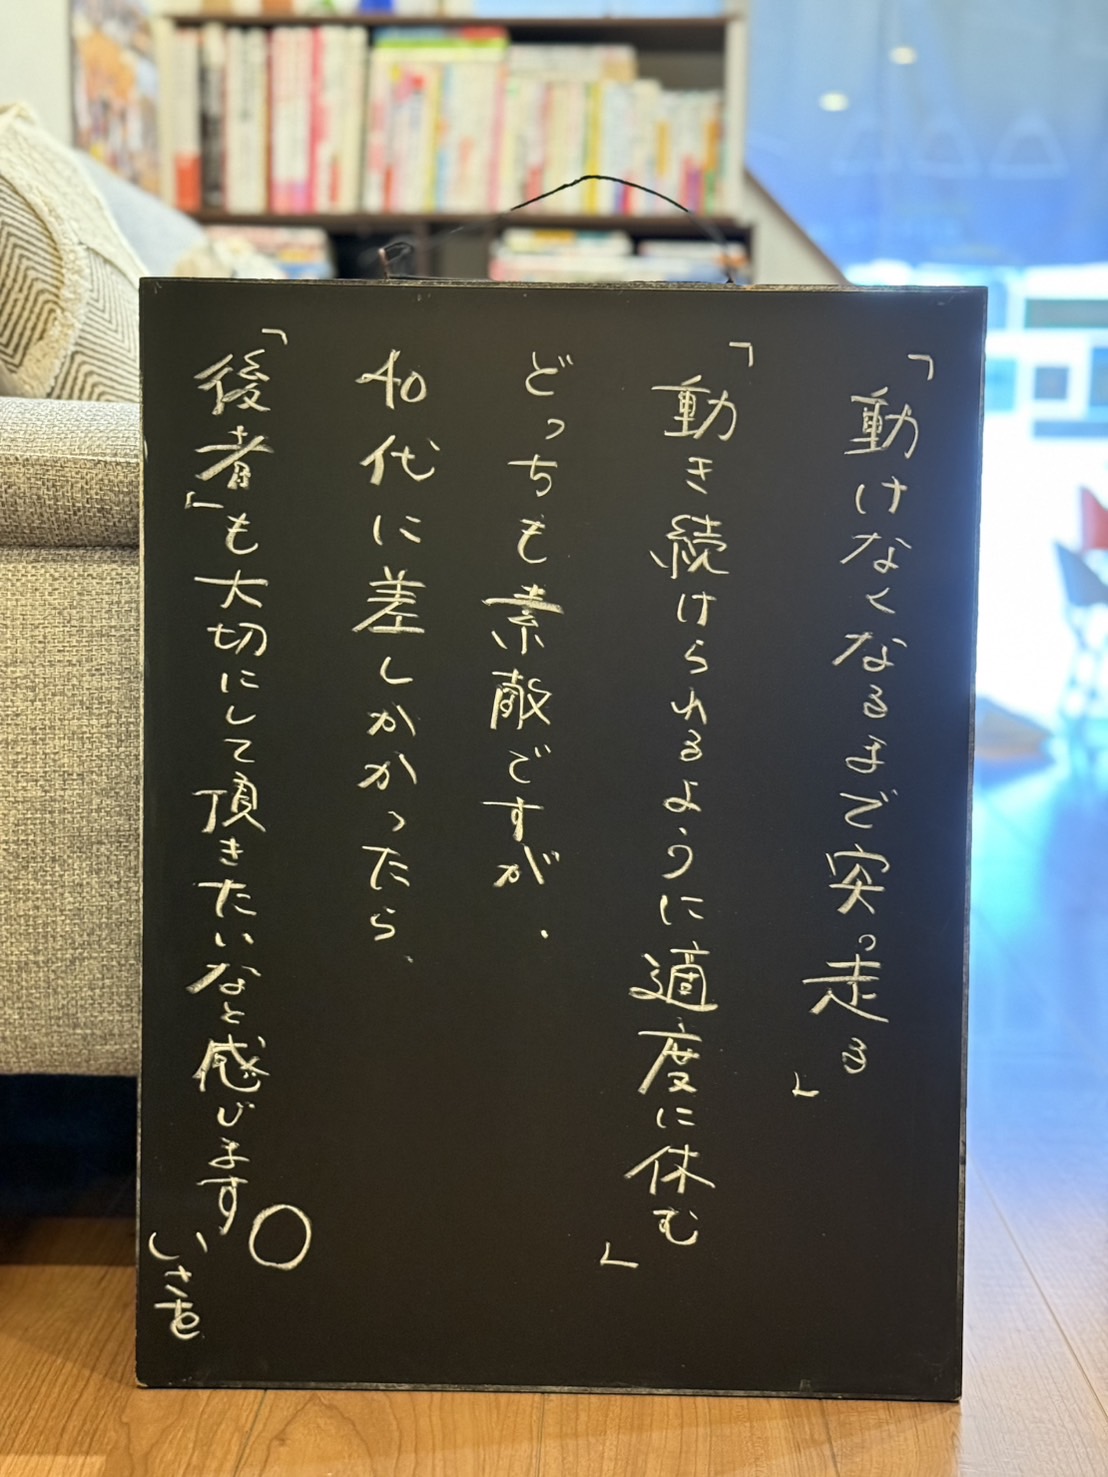 「動けなくなるまで突っ走る」
「動き続けられるように適度に休む」
どっちも素敵ですが、
40代に差しかかったら、
「後者」も大切にして頂きたいなと感じます○
いさを